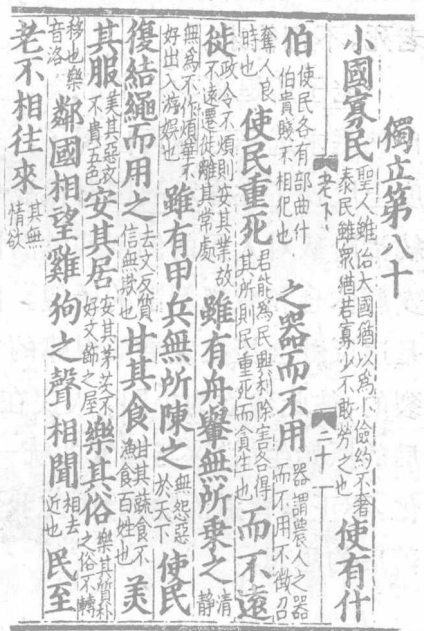 獨立第八十
小國寡民聖人雖治大國猶以為小儉約不奢泰民雖眾猶若寡少不敢勞之也使有什
老下 二十一
伯使民各有部曲什伯貴賤不相犯也之器而不用器謂農人之器而不用不徵召
奪人良時也使民重死君能為民興利除害各得其所則民重死而貪生也而不遠
徙政令不煩則安其業故不遠遷徙離其常處雖有舟轝無所乘之清靜
無為不作煩華不好出入游娛也雖有甲兵無所陳之無怨惡於天下使民
復結繩而用之去文反質信無欺也甘其食甘其蔬食不漁食百姓也美
其服美其惡衣不貴五色安其居安其茅茨不好文飾之屋樂其俗樂其質朴之俗不轉
移也樂音洛鄰國相望雞狗之聲相聞相去近也民至
老不相往來其無情欲